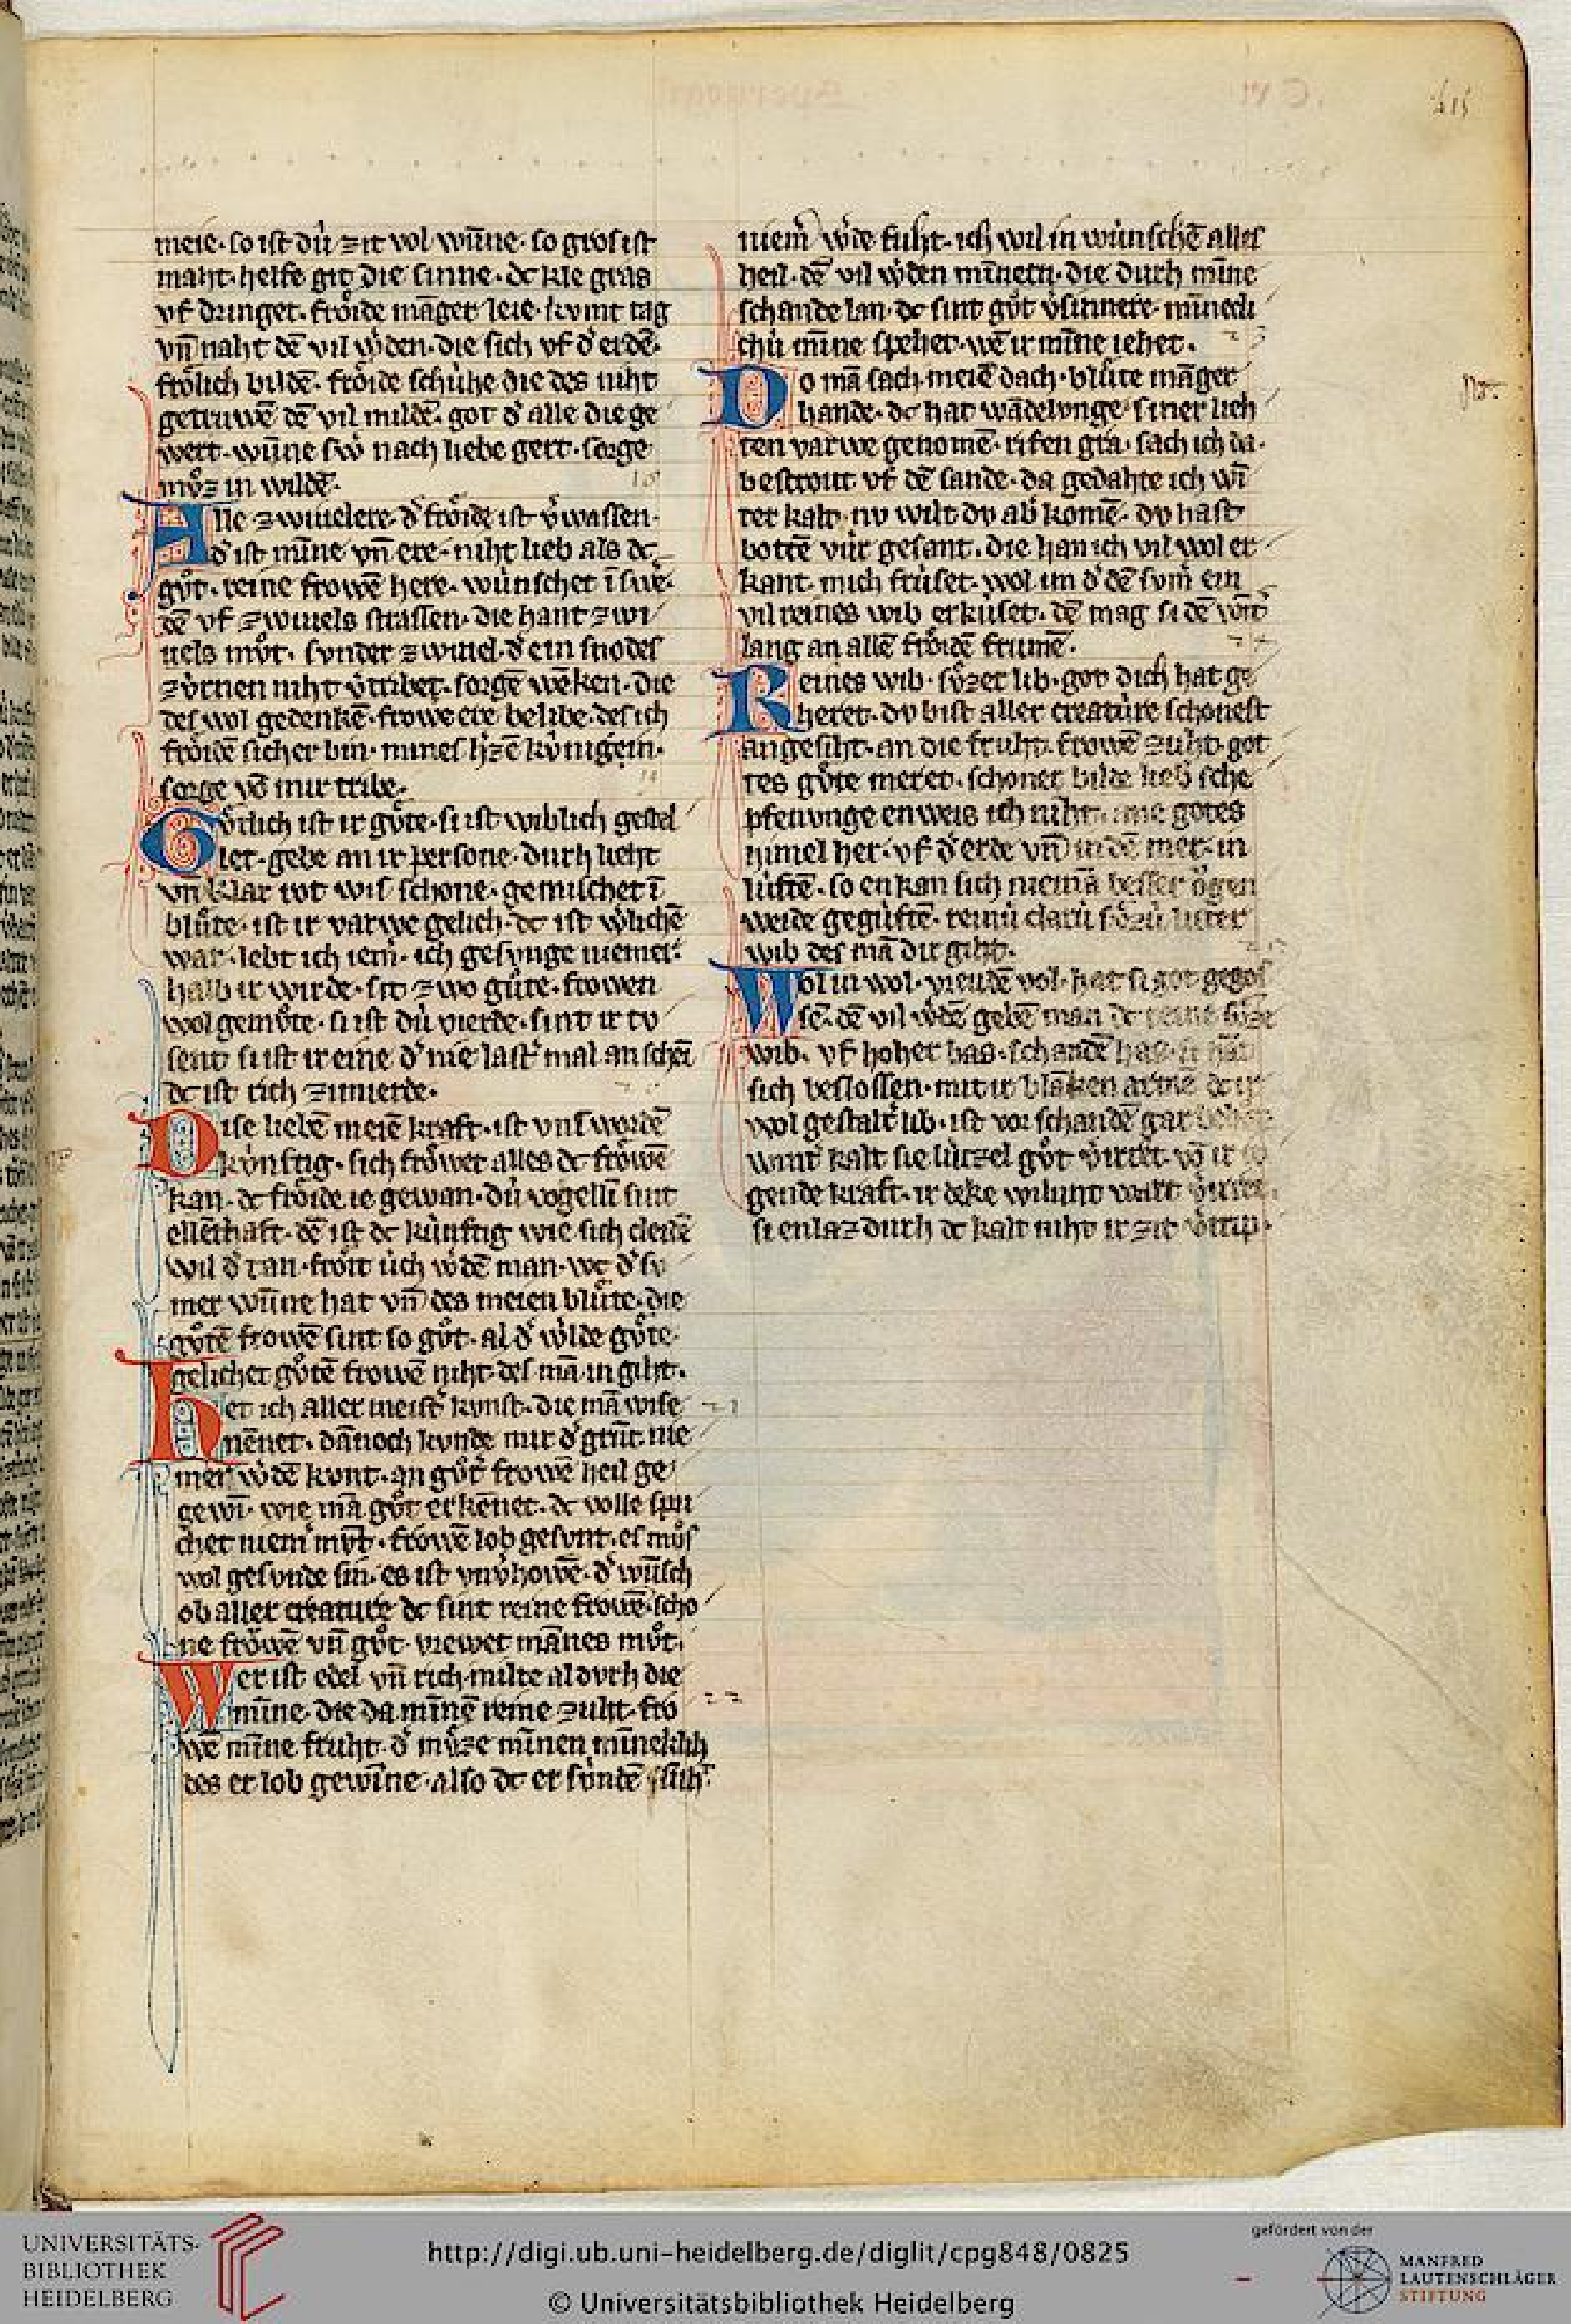 meie·so ist dù zit vol wūne·so gros ist
maht·helfe git die sinne·dc kle gras
vf dringet·frȏide māger leie·kvmt tag
vn̄ naht dē vil w̓den·die sich vf d̓ erdē·
frȏlich bildē·frȏide schùhe die des niht
getruwē dē vil mildē·got d̓ alle die ge
wert·wūne sw̓ nach liebe gert·sorge
mvͦz in wildē·
Alle zwiuelere·d̓ frȏide ist v̓wassen·
d̓ ist mīne vn̄ ere·niht lieb als dc
gvͦt·reine frowē here·wùnschet ī swe·
dē vf zwiuels strassen·die hant zwi
uels mvͦt·svnder zwiuel·d̓ ein snodes
zùrnen niht v̓tribet·sorgē wēken·die
des wol gedenkē·frowe ere belibe·des ich
frȏidē sicher bin·mines h̓zē kùnigein·
sorge vō mir tribe·
Gvͤtlich ist ir gvͤte·si ist wiblich gestal
let·gebe an ir persone·durh lieht
vn̄ klar rot wis schone·gemischet ī
blvͤte·ist ir varwe gelich·dc ist w̓lichē
war·lebt ich iem̓·ich gesvnge niemer·
halb ir wirde·sit zwo gvͤte·frowen
wol gemvͤte·si ist dù vierde·sint ir tv
sent si ist ir eine d̓ nie last̓ mal an schei
dc ist rich zimierde·
Dise liebē meiē kraft·ist vns wordē
kùnftig·sich frȏwet alles dc frȏwē
kan·dc frȏide ie gewan·dù vogellī sint
ellēthaft·dē ist dc kùnftig wie sich cleidē
wil d̓ tan·frȏit ùch w̓dē man·wc d̓ sv
mer wūne hat vn̄ des meien blvͤte·die
gvͦtē frowē sint so gvͦt·al d̓ w̓lde gvͤte·
gelichet gvͦtē frowē niht·des mā in giht·
Het ich aller meist̓ kvnst·die mā wise
nēnet·dānoch kvnde mir d̓ grūt·nie
mer w̓dē kvnt·an gvͦt̓ frowē heil ge
gewī·wie mā gvͦt erkēnet·dc volle spri
chet niem̓ mvͦt·frowē lob gesvnt·es mvͦs
wol gesvnde sin·es ist vnv̓howē·d̓ wūsch
ob aller creature dc sint reine frowē·scho
ne frowē vn̄ gvͦt·vrewet mānes mvͦt·
Wer ist edel vn̄ rich·milte al dvrh die
mīne·die da mīnē reine zuht·fro
wē mīne fruht·d̓ mvͤze mīnen mīneklich
des er lob gewīne·also dc er sùndē
niem̓ w̓de fuht·ich wil in wùnschē alles
heil·dē vil w̓den mīnern·die durh mīne
schande lan·dc sint gvͦt v̓sinnere·mīnecli
chù mīne spehet·wē ir mīne iehet·
Do mā sach·meiē dach·blvͤte māger
hande·dc hat wādelvnge siner lich
ten varwe genomē·rifen gra·sach ich da·
bestrout vf dē sande·da gedahte ich wī
ter kalt·nv wilt dv ab̓ komē·dv hast
bottē vùr gesant·die han ich vil wol er
kant·mich frùset·wol im d̓ dē svm̓ ein
vil reines wib erkùset·dē mag si dē wīt̓
lang an allē frȏidē frumē·
Reines wib·svͤzer lib·got dich hat ge
heret·dv bist aller creatùre schonest
angesiht·an die fruht·frowē zuht·got
tes gvͤte meret·schoner bilde lieb̓ sche
pfenvnge enweis ich niht·ane gotes
himel her·vf d̓ erde vn̄ in dē mer·in
lùftē·so en kan sich niemā besser ȏgen
weide gegùftē·reinù clarù svͤzù luter
wib des mā dir giht·
Wol in wol·vreudē vol·hat si got gegos
sē·dē vil w̓dē gebē man dc reine svͤze
wib·vf hoher bas·schandē has·
sich beslossen·mit ir blāken armē dc ir
wol gestalt̓ lib·ist vor schandē gar
wint̓ kalt sie lùtzel gvͦt v̓irret·vō ir
gende kraft·ir deke wilunt wart
si enlaz durh dc kalt niht ir zit v̓trip·
415
UNIVERSITÄTS-
BIBLIOTHEK
HEIDELBERG
http://digi.ub.uni-heidelberg.de/diglit/cpg848/0825
© Universitätsbibliothek Heidelberg
gefördert von der
MANFRED
LAUTENSCHLÄGER
STIFTUNG